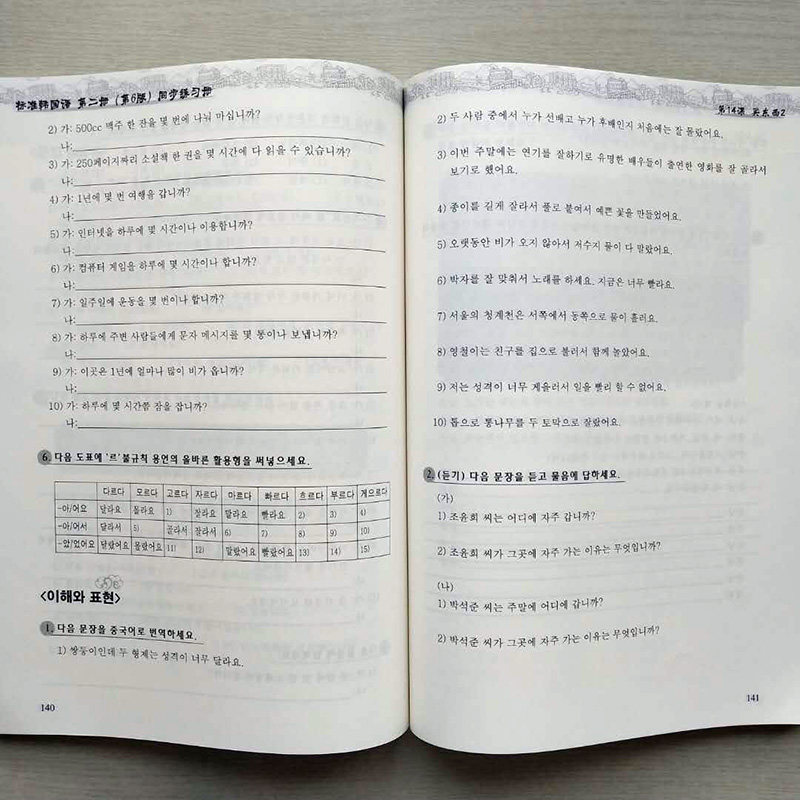 标准韩国语 第二册（第6版）同步练习册
2) 가: 500cc 맥주 한 잔을 몇 번에 나눠 마십니까?
나:
3) 가: 250페이지짜리 소설책 한 권을 몇 시간에 다 읽을 수 있습니까?
나:
4) 가: 1년에 몇 번 여행을 갑니까?
나:
5) 가: 인터넷을 하루에 몇 시간이나 이용합니까?
나:
6) 가: 컴퓨터 게임을 하루에 몇 시간이나 합니까?
나:
7) 가: 일주일에 운동을 몇 번이나 합니까?
나:
8) 가: 하루에 주변 사람들에게 문자 메시지를 몇 통이나 보냅니까?
나:
9) 가: 이곳은 1년에 얼마나 많이 비가 옵니까?
나:
10) 가: 하루에 몇 시간쯤 잠을 잡니까?
나:
6. 다음 도표에 '르'불규칙 용언의 올바른 활용형을 써넣으세요.
다르다 모르다 고르다 자르다 마르다 빠르다 흐르다 부르다 게으르다
-아/어요 달라요 몰라요 1) 잘라요 말라요 빨라요 2) 3) 4)
-아/어서 달라서 5) 골라서 잘라서 6) 7) 8) 9) 10)
-았/었어요 달랐어요 몰랐어요 11) 12) 말랐어요 빨랐어요 13) 14) 15)
<이해와 표현>
1. 다음 문장을 중국어로 번역하세요.
1) 쌍둥이인데 두 형제는 성격이 너무 달라요.
140
第14课 买东西2
2) 두 사람 중에서 누가 선배고 누가 후배인지 처음에는 잘 몰랐어요.
3) 이번 주말에는 연기를 잘하기로 유명한 배우들이 출연한 영화를 잘 골라서
보기로 했어요.
4) 종이를 길게 잘라서 풀로 붙여서 예쁜 꽃을 만들었어요.
5) 오랫동안 비가 오지 않아서 저수지 물이 다 말랐어요.
6) 박자를 잘 맞춰서 노래를 하세요. 지금은 너무 빨라요.
7) 서울의 청계천은 서쪽에서 동쪽으로 물이 흘러요.
8) 영철이는 친구를 집으로 불러서 함께 놀았어요.
9) 저는 성격이 너무 게을러서 일을 빨리 할 수 없어요.
10) 톱으로 통나무를 두 토막으로 잘랐어요.
2. (듣기) 다음 문장을 듣고 물음에 답하세요.
(가)
1) 조윤희 씨는 어디에 자주 갑니까?
2) 조윤희 씨가 그곳에 자주 가는 이유는 무엇입니까?
(나)
1) 박석준 씨는 주말에 어디에 갑니까?
2) 박석준 씨가 그곳에 자주 가는 이유는 무엇입니까?
141